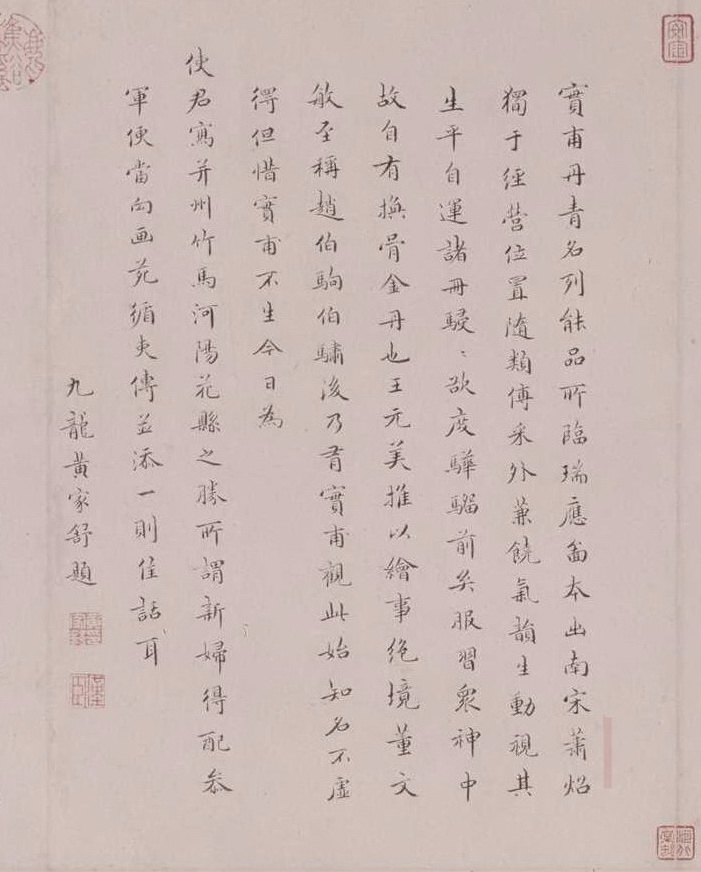 實甫丹青名列能品所臨瑞應啚本出南宋蕭炤
獨于經營位置隨類傅采外兼饒氣韻生動視其
生平自運諸冊駸〻欲度驊騮前矣服習眾神中
故自有換骨金丹也王元美推以繪事絶境董文
敏至稱趙伯駒伯驌後乃有實甫觀此始知名不虛
得但惜實甫不生今日為
使君寫并州竹馬河陽花縣之勝所謂新婦得配參
軍便當向画苑循吏傳並添一則佳話耳
九龍黃家舒題